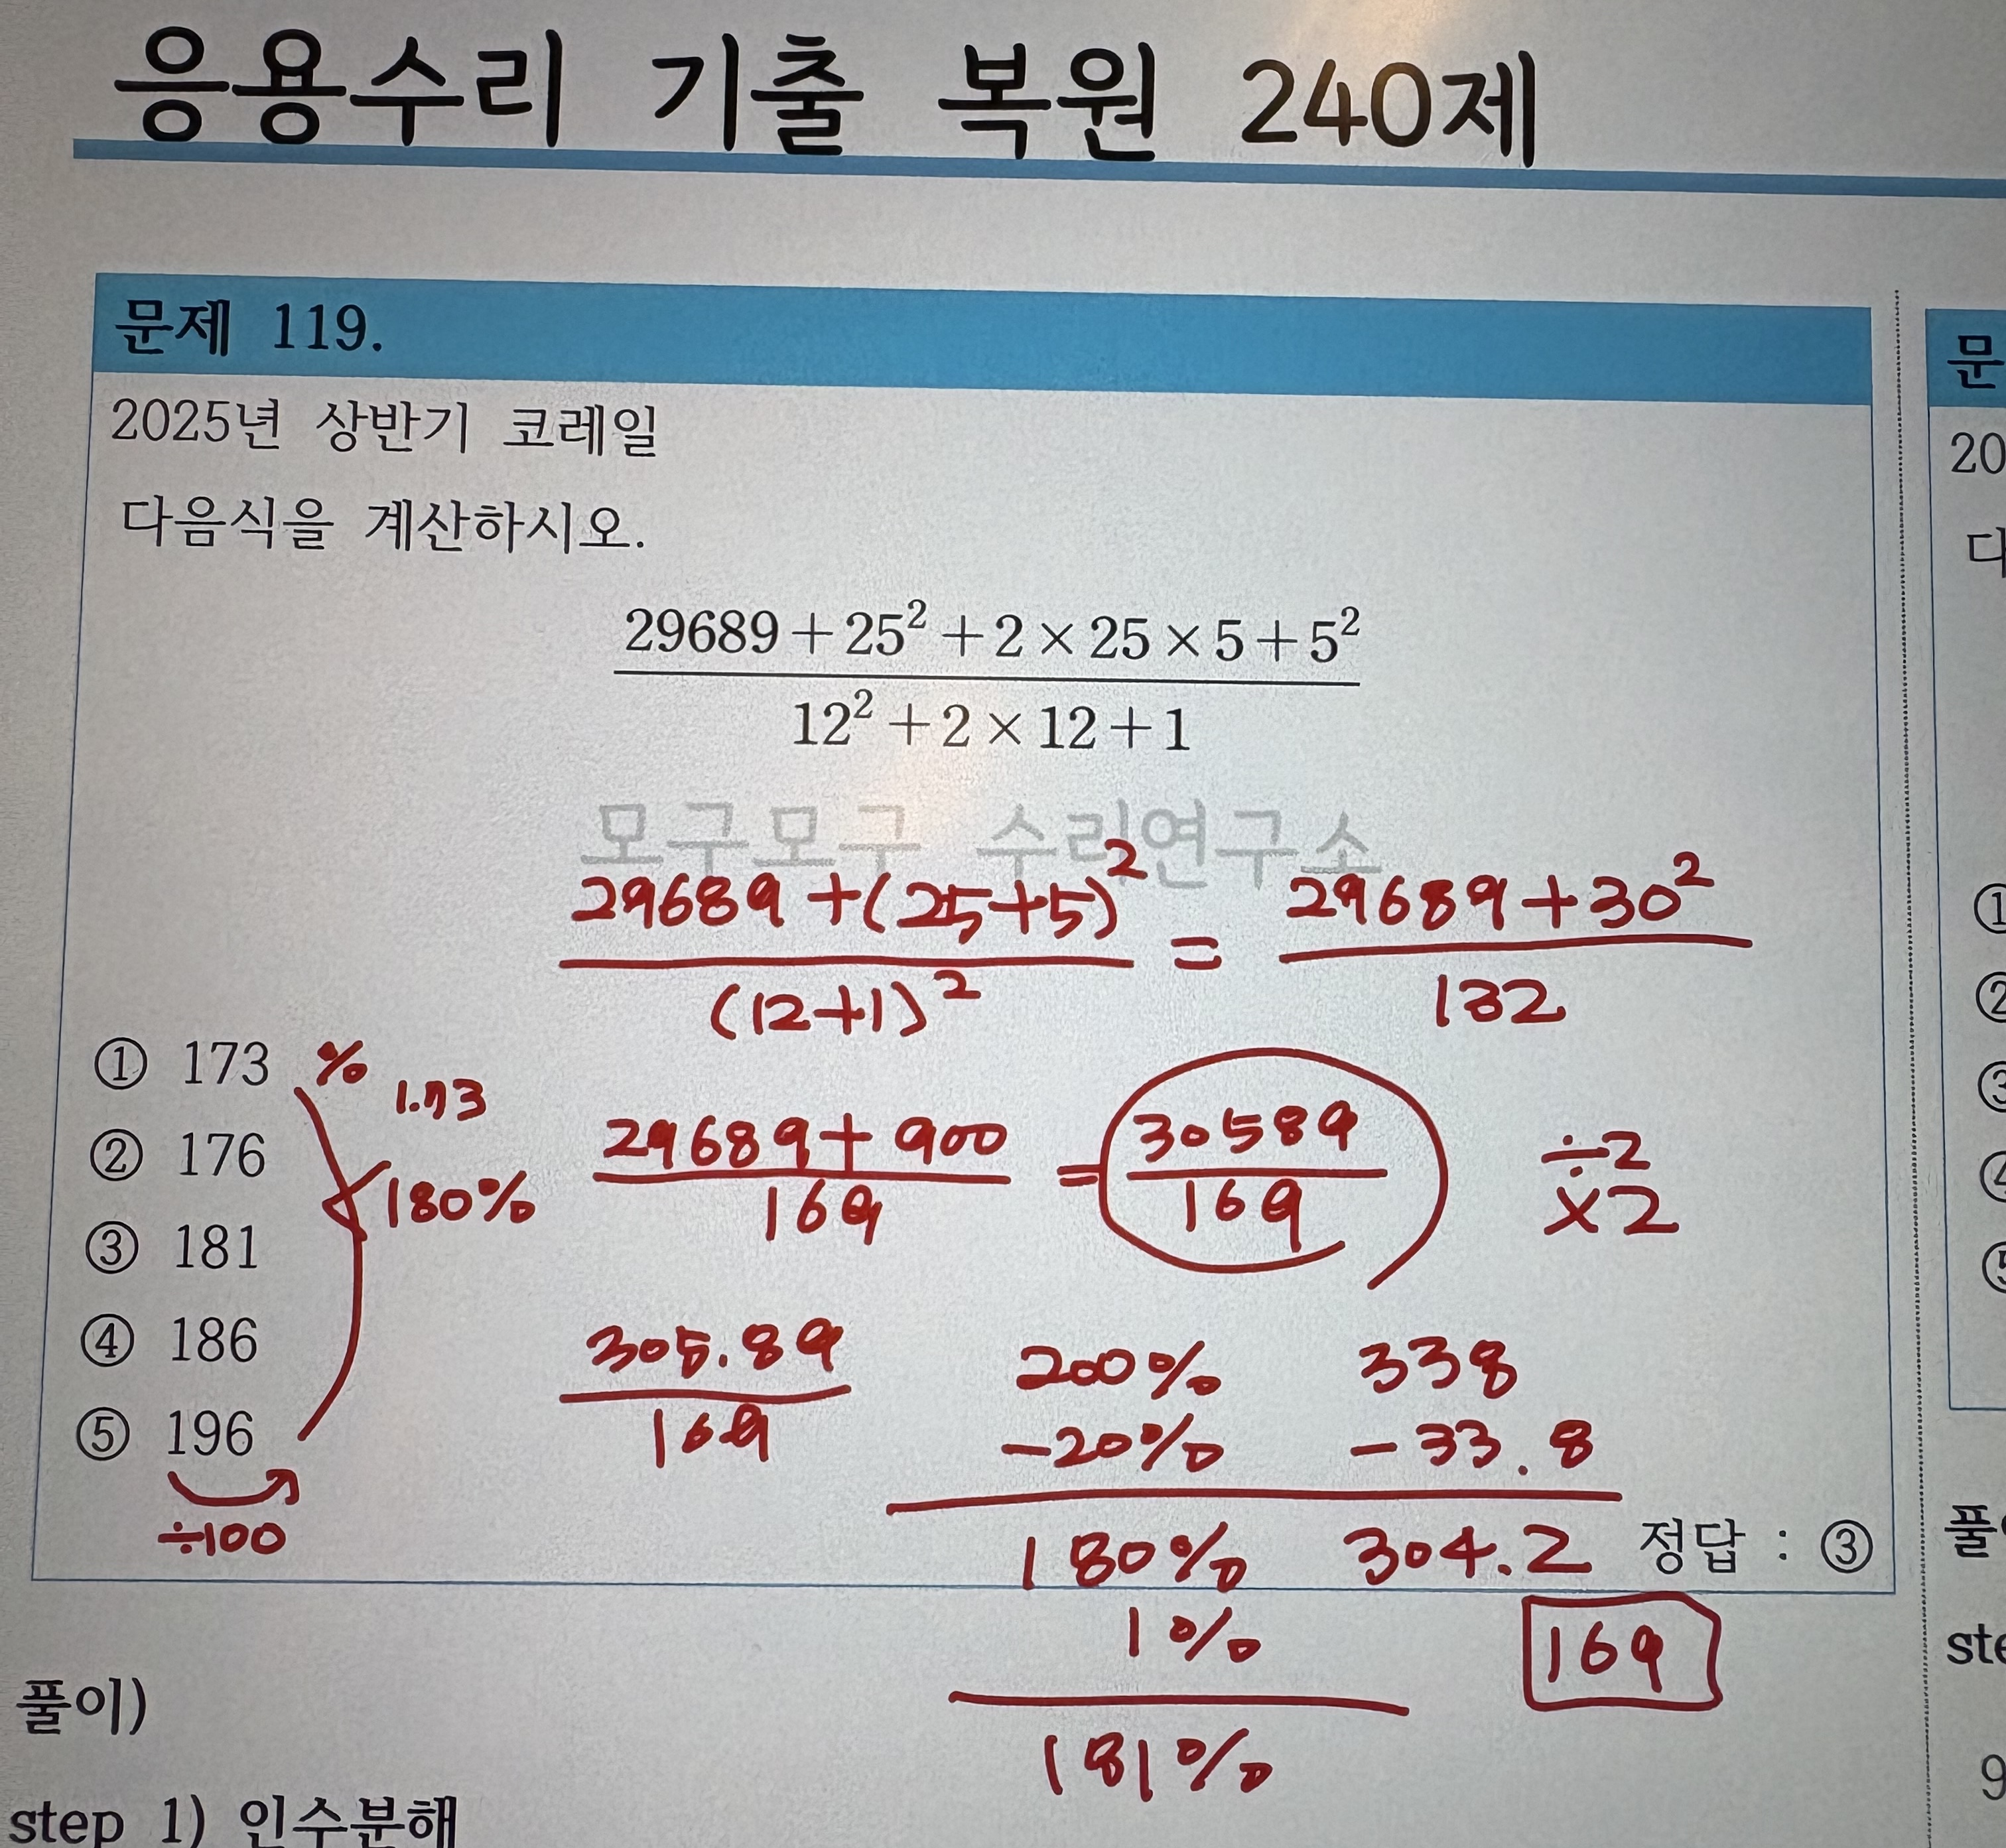 응용수리 기출 복원 240제
문제 119.
2025년 상반기 코레일
다음식을 계산하시오.
29689+25²+2×25×5+5²
12²+2×12+1
모구모구 수리연구소
29689+(25+5)² = 29689+30²
(12+1)² 132
① 173 % 1.73
② 176
180%
③ 181
④ 186
⑤ 196
÷100
29689+900 = 30589
169 169
÷2
×2
305.89
169
200% 338
-20% -33.8
180% 304.2
1% 169
181%
정답 : ③
풀이)
step 1) 인수분해
문
20
다
①
②
③
④
⑤
풀이
ste
9